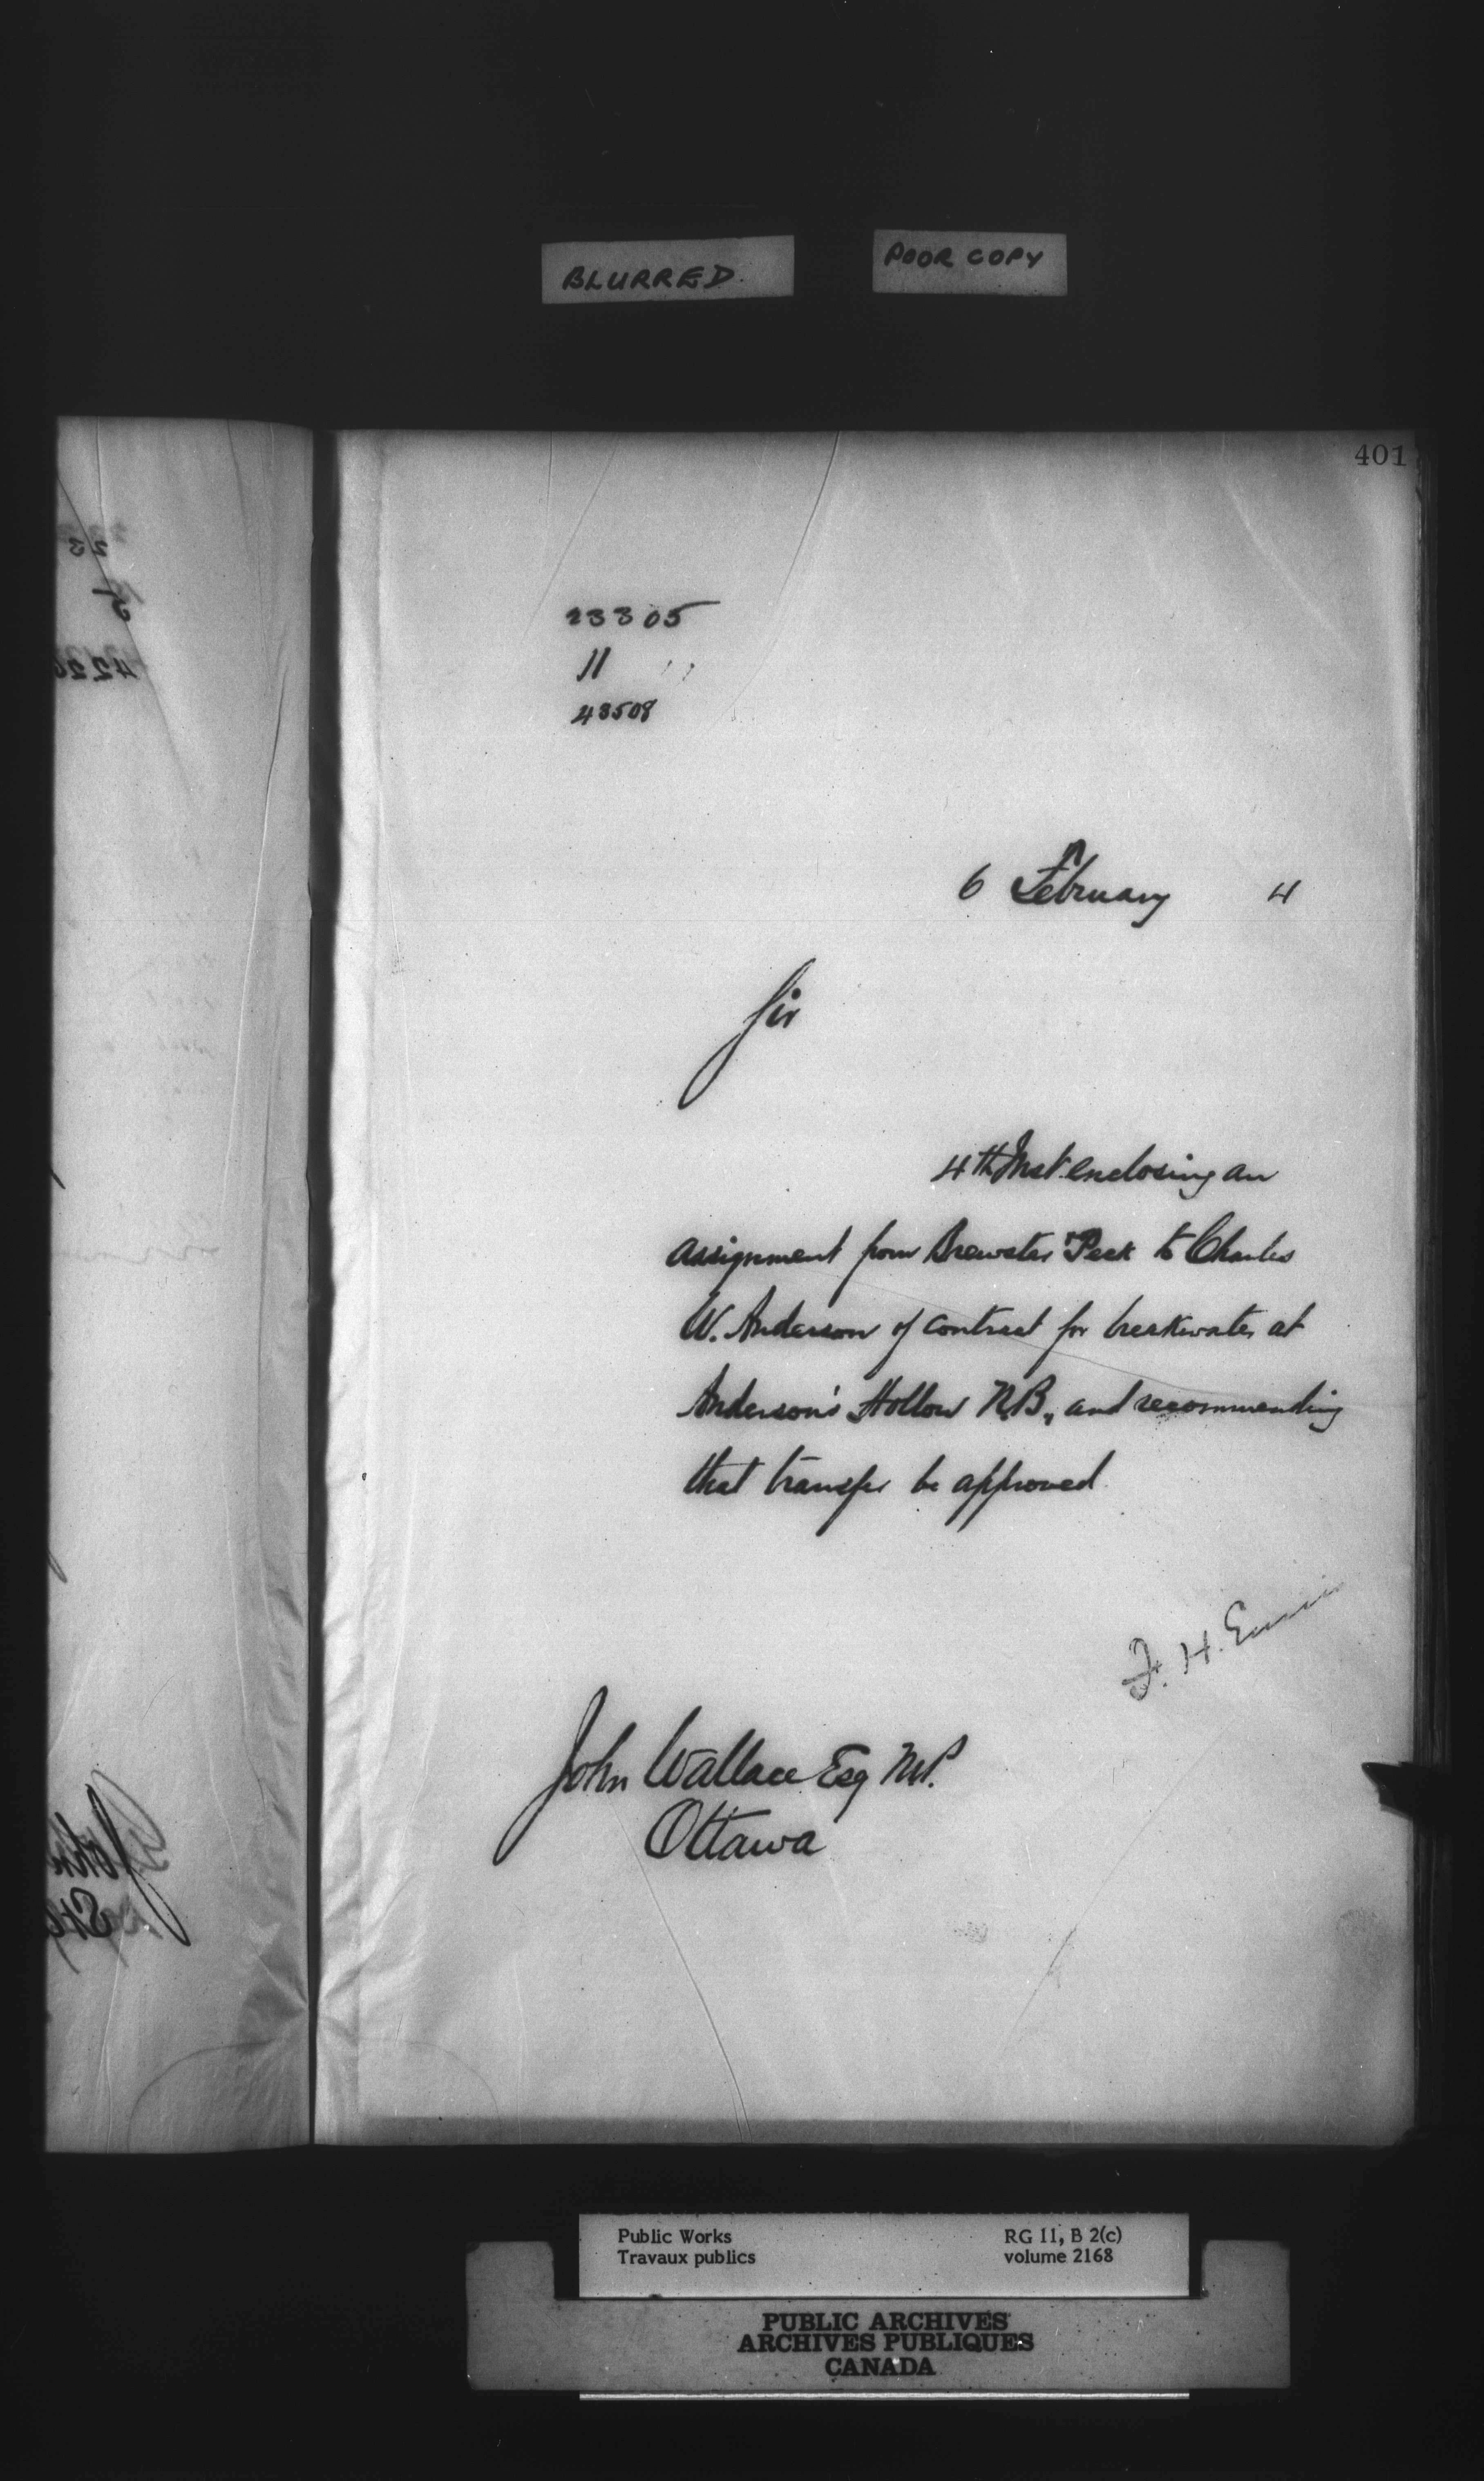 BLURRED
POOR COPY
401
23305
11
43508
6 February 4
Sir
4th Inst. enclosing an
assignment from Brewster Peck to Charles
W. Anderson of contract for breakwater at
Anderson's Hollow N.B., and recommending
that transfer be approved
F. H. Ennis
John Wallace Esq M.P.
Ottawa
Public Works
Travaux publics
RG 11, B 2(c)
volume 2168
PUBLIC ARCHIVES
ARCHIVES PUBLIQUES
CANADA